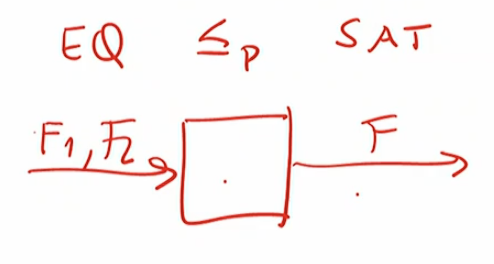 EQ ≤p SAT
F1, F2 F